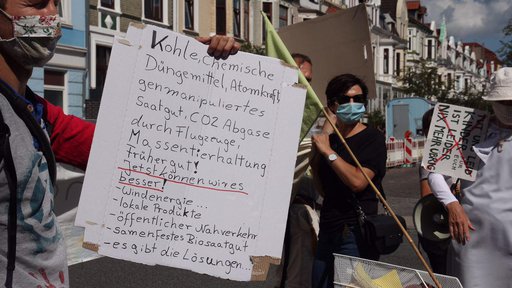 Kohle, Chemische
Düngemittel, Atomkraft
genmanipuliertes
Saatgut, CO2 Abgase
durch Flugzeuge,
Massentierhaltung
früher gut!
Jetzt können wir es
besser!
- Windenergie...
- lokale Produkte
- öffentlicher Nahverkehr
- samenfestes Biosaatgut
- es gibt die Lösungen...
IST LEIDER